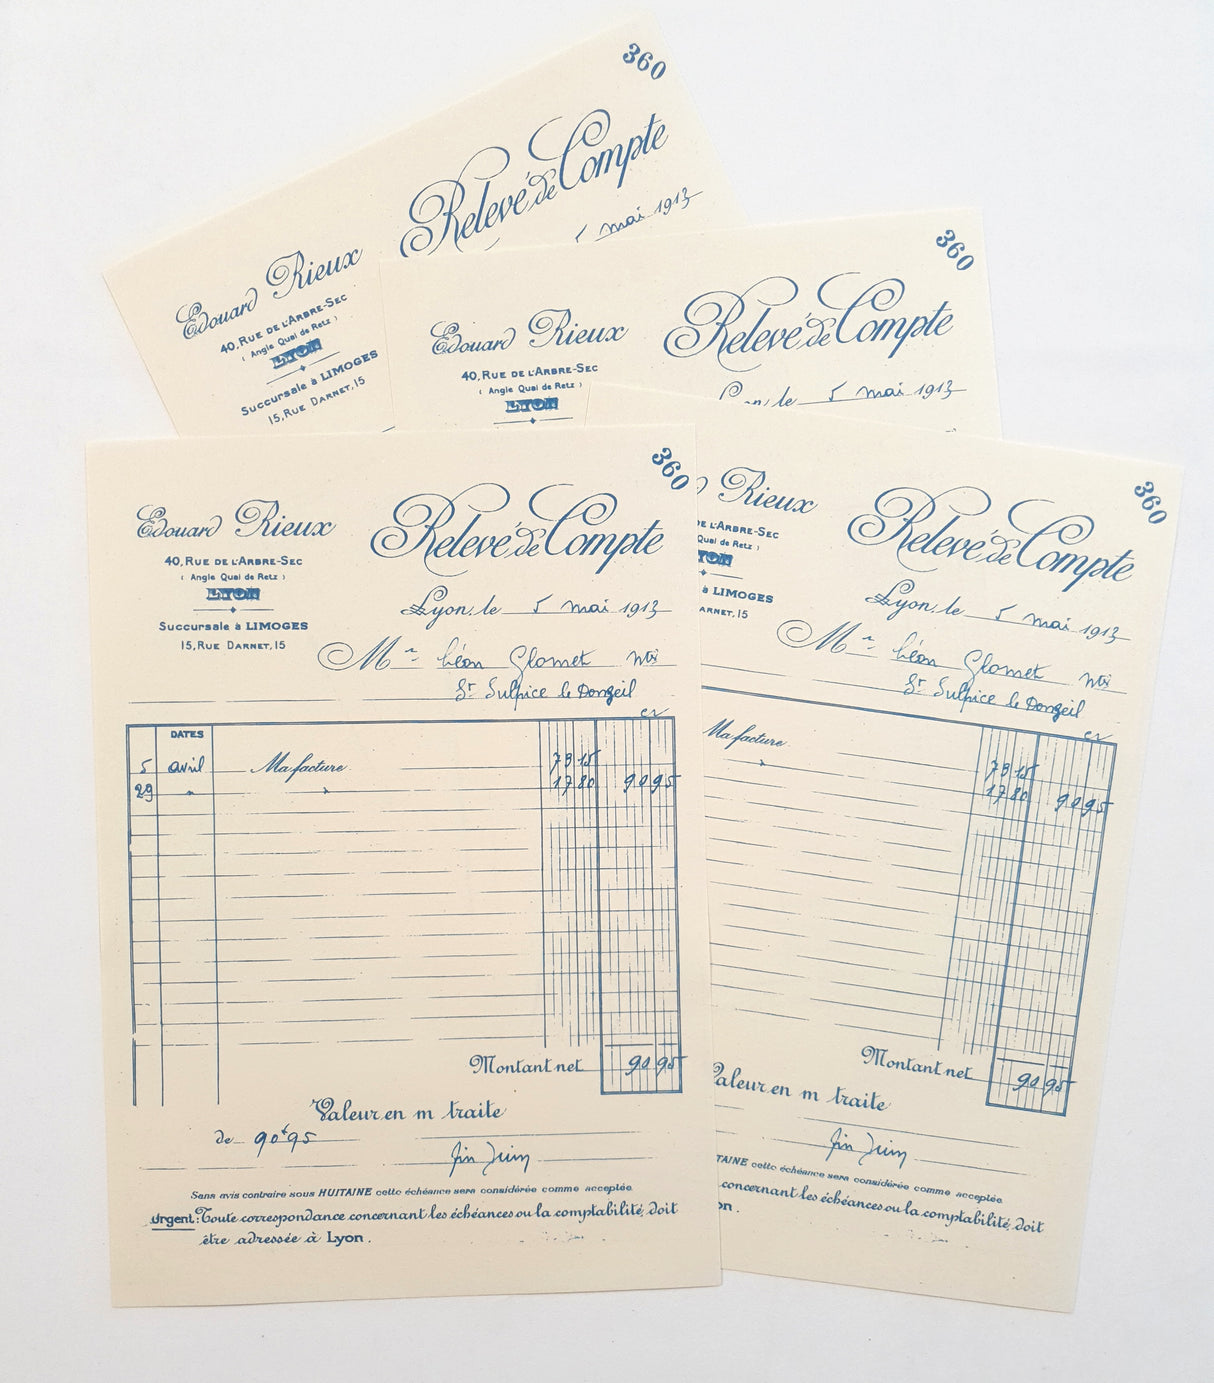 360
Relevé de Compte
5 mai 1913
Edouard Rieux
40, RUE DE L'ARBRE-SEC
( Angle Quai de Retz )
LYON
Succursale à LIMOGES
15, RUE DARNET, 15
360
Edouard Rieux
Relevé de Compte
40, RUE DE L'ARBRE-SEC
( Angle Quai de Retz )
LYON
le 5 mai 1913
360
Edouard Rieux
Relevé de Compte
40, RUE DE L'ARBRE-SEC
( Angle Quai de Retz )
LYON
Succursale à LIMOGES
15, RUE DARNET, 15
Lyon, le 5 mai 1913
Mr Léon Glomet
St Sulpice le Donzeil
DATES
5 avril Ma facture 73 15
29 " " 17 80 90 95
Montant net 90 95
Valeur en m traite
de 90f95
fin Juin
Sans avis contraire sous HUITAINE cette échéance sera considérée comme acceptée
Urgent: Toute correspondance concernant les échéances ou la comptabilité, doit
être adressée à Lyon.
360
Rieux
Relevé de Compte
DE L'ARBRE-SEC
Quai de Retz )
YON
à LIMOGES
ARNET, 15
Lyon, le 5 mai 1913
Mr Léon Glomet
St Sulpice le Donzeil
Ma facture 73 15
" 17 80 90 95
Montant net 90 95
Valeur en m traite
fin Juin
TAINE cette échéance sera considérée comme acceptée
concernant les échéances ou la comptabilité, doit
on.